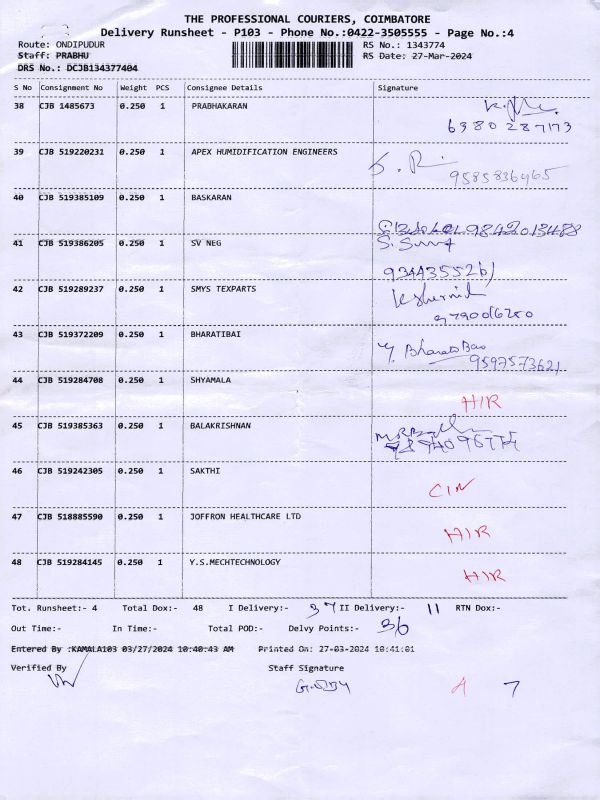 THE PROFESSIONAL COURIERS, COIMBATORE
Delivery Runsheet - P103 - Phone No.:0422-3505555 - Page No.:4
Route: ONDIPUDUR RS No.: 1343774
Staff: PRABHU RS Date: 27-Mar-2024
DRS No.: DCJB134377404
S No Consignment No Weight PCS Consignee Details Signature
38 CJB 1485673 0.250 1 PRABHAKARAN
6380 287173
39 CJB 519220231 0.250 1 APEX HUMIDIFICATION ENGINEERS
9585836465
40 CJB 519385109 0.250 1 BASKARAN
9842013488
41 CJB 519386205 0.250 1 SV NEG
9344355261
42 CJB 519289237 0.250 1 SMYS TEXPARTS
9790016250
43 CJB 519372209 0.250 1 BHARATIBAI
Y. Bharati Bai
9597573621
44 CJB 519284708 0.250 1 SHYAMALA
HIR
45 CJB 519385363 0.250 1 BALAKRISHNAN
46 CJB 519242305 0.250 1 SAKTHI
CIN
47 CJB 518885590 0.250 1 JOFFRON HEALTHCARE LTD
HIR
48 CJB 519284145 0.250 1 Y.S.MECHTECHNOLOGY
HIR
Tot. Runsheet:- 4 Total Dox:- 48 I Delivery:- 37 II Delivery:- 11 RTN Dox:-
Out Time:- In Time:- Total POD:- Delvy Points:- 36
Entered By :KAMALA103 03/27/2024 10:40:43 AM Printed On: 27-03-2024 10:41:01
Verified By Staff Signature
A 7